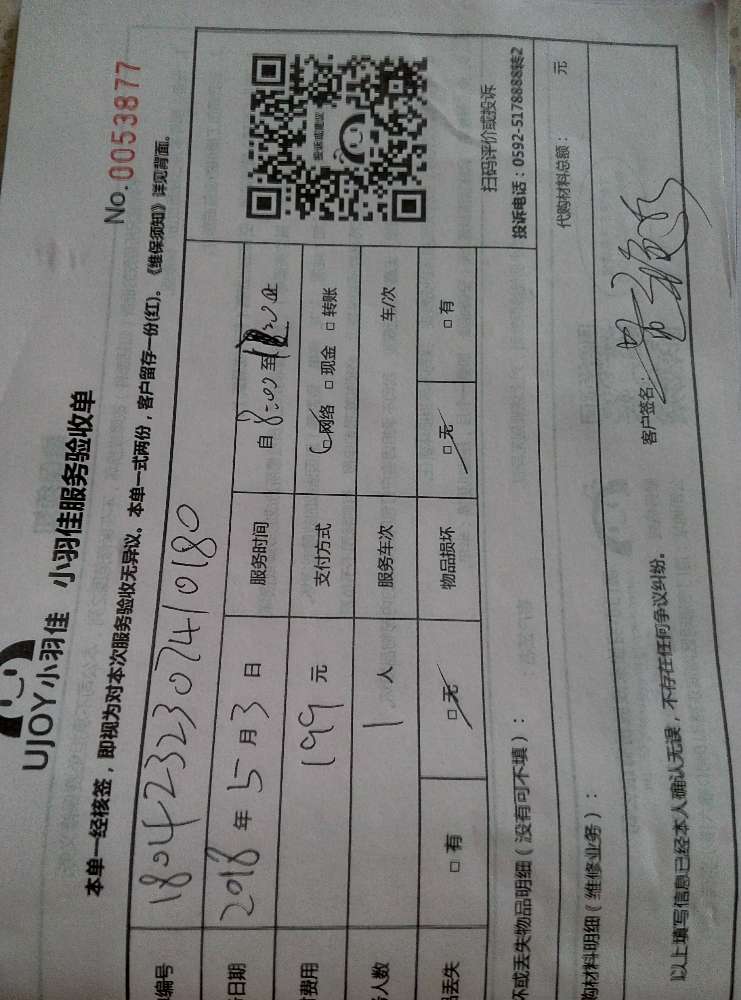 UJOY小羽佳 小羽佳服务验收单
No.0053877
本单一经核签，即视为对本次服务验收无异议。本单一式两份，客户留存一份(红)。《维保须知》详见背面。
编号 1804232307410180
日期 2018年5月3日 服务时间 自8:00至
费用 199元 支付方式 □网络 □现金 □转账
人数 1人 服务车次 车/次
丢失 □有 □无 物品损坏 □无 □有
投诉或建议
扫码评价或投诉
投诉电话：0592-5178888转2
坏或丢失物品明细（没有可不填）：
购材料明细（维修业务）： 代购材料总额： 元
以上填写信息已经本人确认无误，不存在任何争议纠纷。 客户签名：